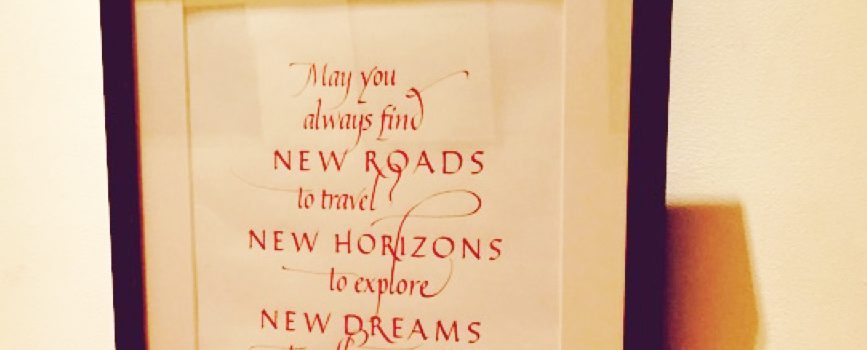 May you
always find
NEW ROADS
to travel
NEW HORIZONS
to explore
NEW DREAMS